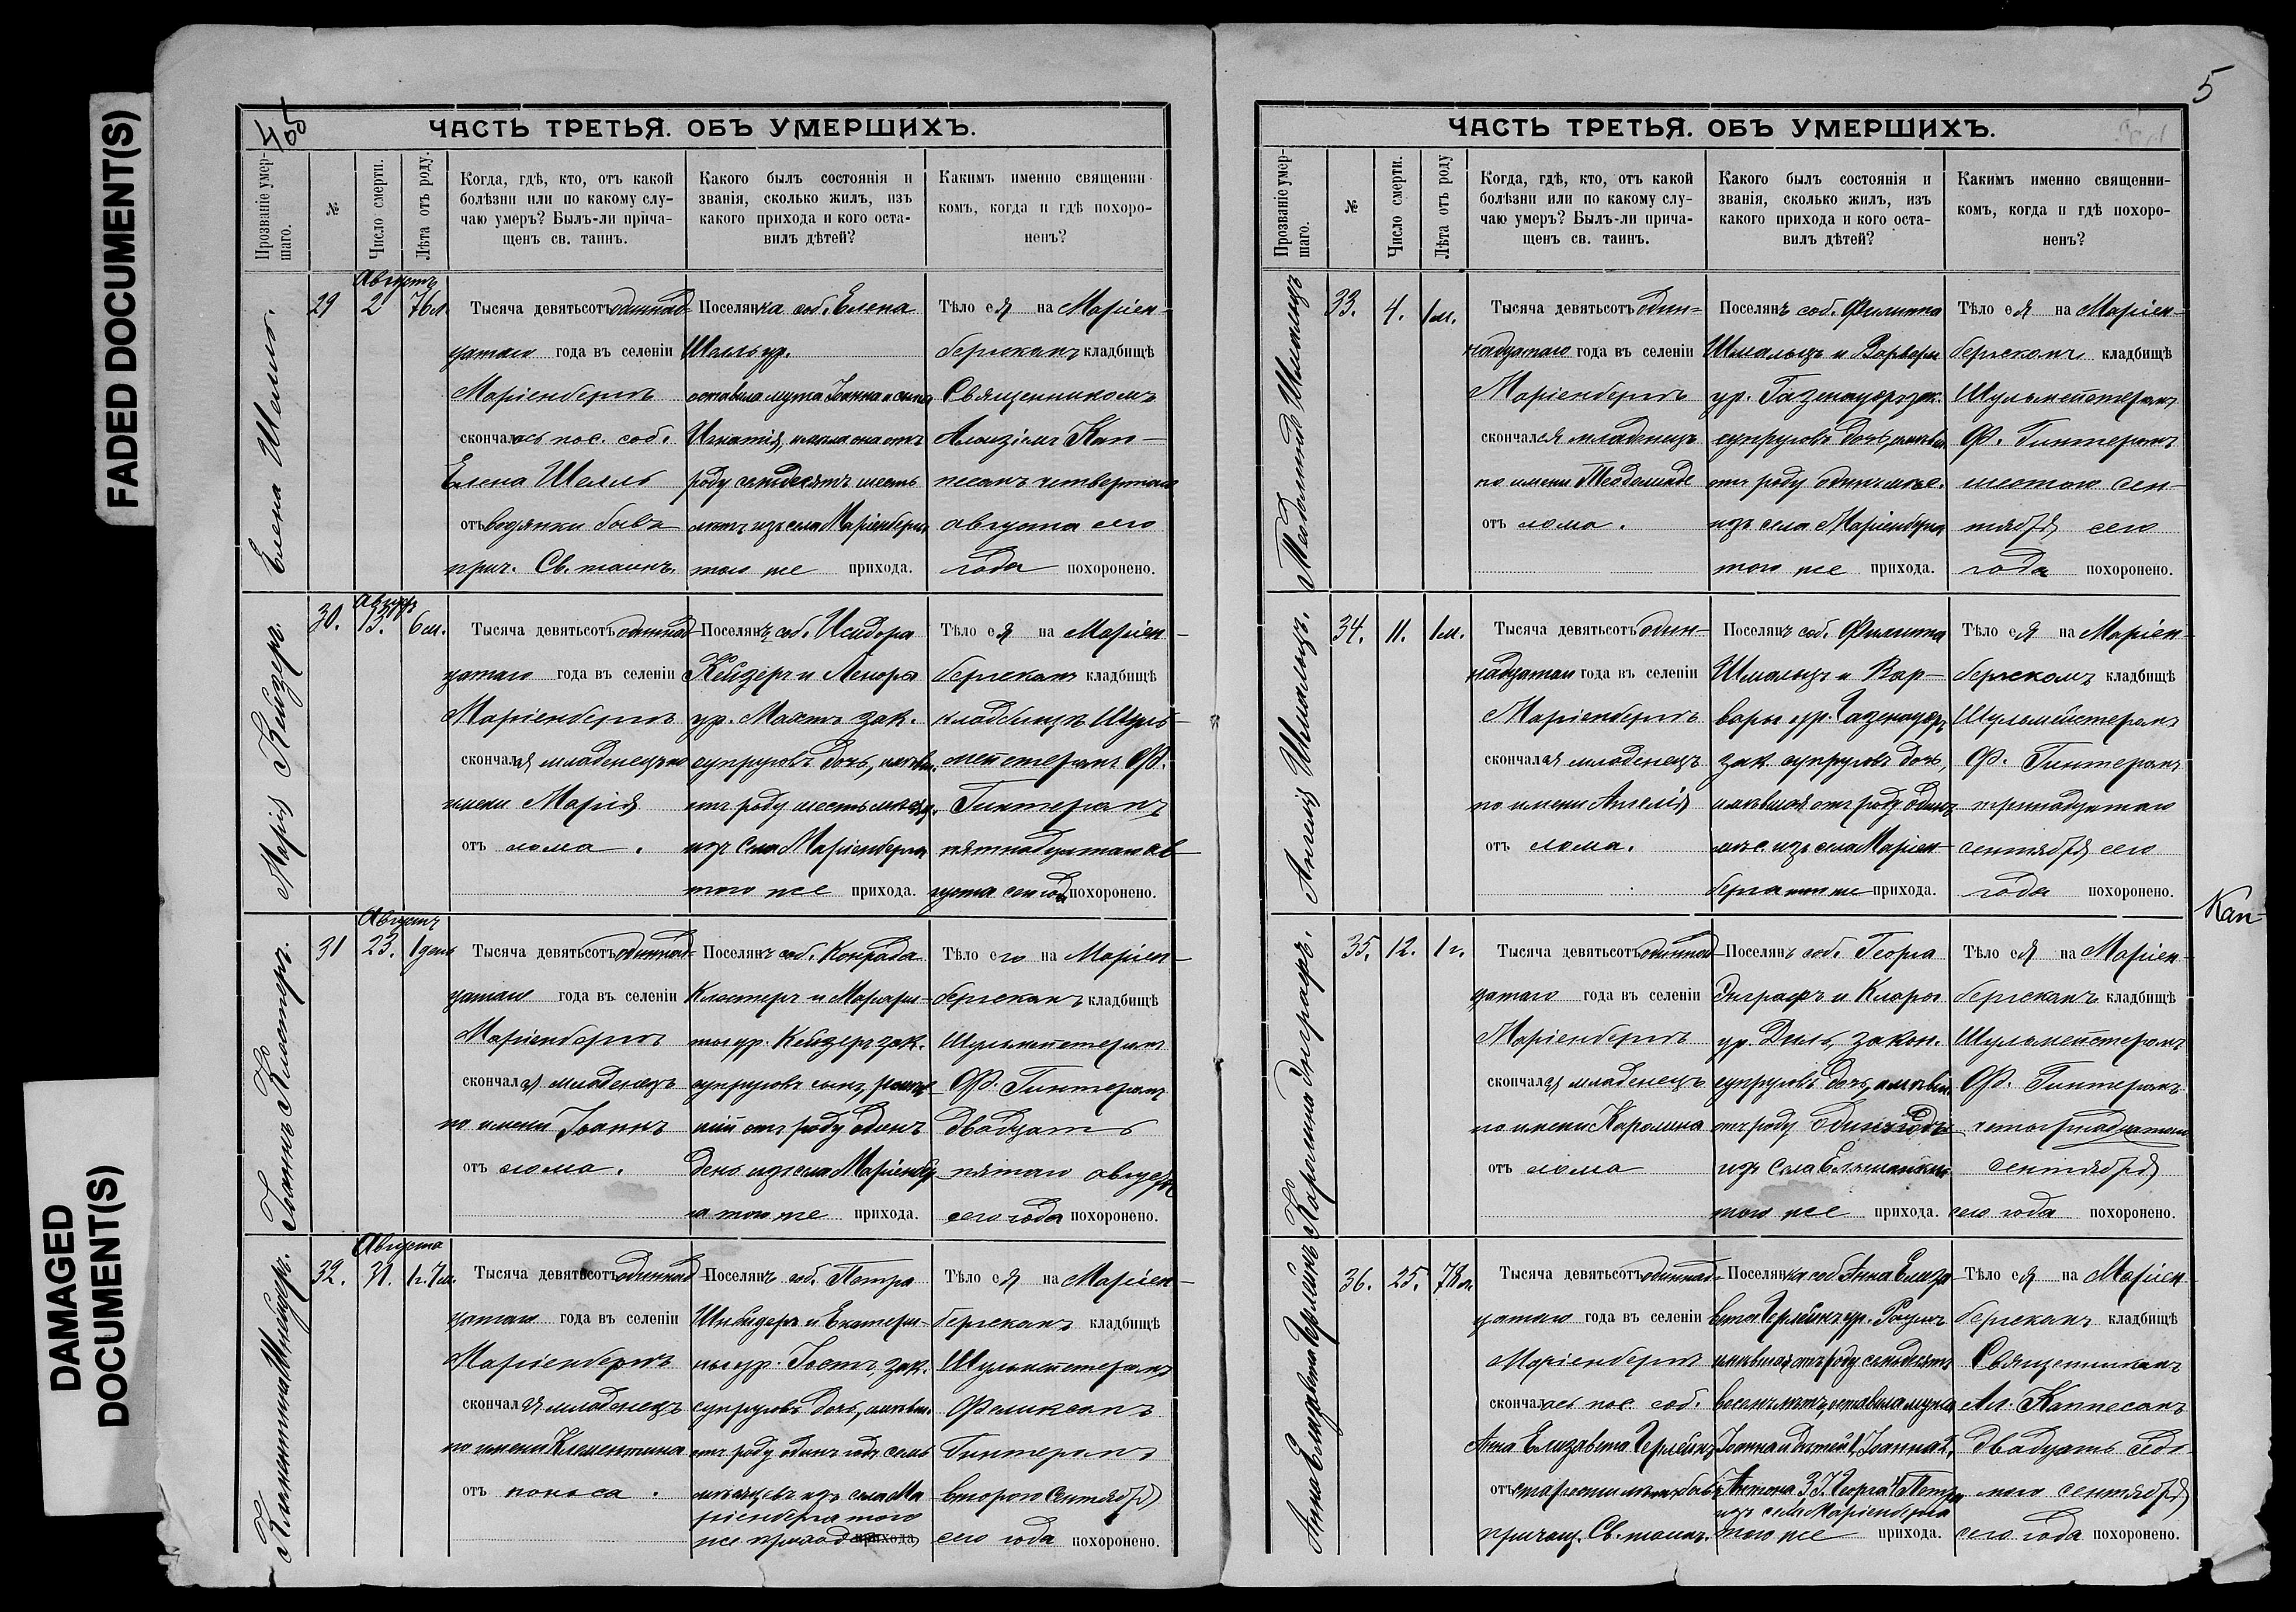 FADED DOCUMENT(S)
DAMAGED
DOCUMENT(S)
ЧАСТЬ ТРЕТЬЯ. ОБЪ УМЕРШИХЪ.
Прозваніе умер-
шаго.
№
Число смерти.
Лѣта отъ роду.
Когда, гдѣ, кто, отъ какой
болѣзни или по какому слу-
чаю умеръ? Былъ-ли прича-
щенъ св. таинъ.
Какого былъ состоянія и
званія, сколько жилъ, изъ
какого прихода и кого оста-
вилъ дѣтей?
Какимъ именно священни-
комъ, когда и гдѣ похоро-
ненъ?
Елена Шелль.
29
Августъ
2
76 л.
Тысяча девятьсотъ одиннад-
цатаго года въ селеніи
Маріенбергѣ
скончалась пос. соб.
Елена Шелль
отъ водянки бывъ
прич. Св. таинъ.
Поселянка соб. Елена
Шелль ур.
оставила мужа Іоанна и сына
Игнатія, имѣла она отъ
роду семьдесятъ шесть
лѣтъ изъ села Маріенберга
того же прихода.
Тѣло ея на Маріен-
бергскомъ кладбищѣ
Священникомъ
Алоизіемъ Кап-
песомъ четвертаго
августа сего
года похоронено.
Марія Кейзеръ.
30.
Августъ
13.
6 м.
Тысяча девятьсотъ одиннад-
цатаго года въ селеніи
Маріенбергѣ
скончался младенецъ по
имени Марія
отъ лома.
Поселянъ соб. Исидора
Кейзеръ и Леноры
ур. Махтъ зак.
супруговъ дочь, имѣвш.
отъ роду шесть мѣсяц.
изъ села Маріенберга
того же прихода.
Тѣло ея на Маріен-
бергскомъ кладбищѣ
кладбищѣ Шуль-
мейстеромъ Ф.
Гинтеромъ
пятнадцатаго ав-
густа сего года похоронено.
Іоаннъ Клостеръ.
31
Августъ
23.
1 день
Тысяча девятьсотъ одиннад-
цатаго года въ селеніи
Маріенбергѣ
скончался младенецъ
по имени Іоаннъ
отъ лома.
Поселянъ соб. Конрада
Клостеръ и Маргари-
ты ур. Кейзеръ зак.
супруговъ сынъ, имѣв-
шій отъ роду одинъ
день изъ села Маріенбер-
га того же прихода.
Тѣло его на Маріен-
бергскомъ кладбищѣ
Шульмейстеромъ
Ф. Гинтеромъ
двадцать
пятаго августа
сего года похоронено.
Климентина Шнейдеръ.
32.
Августа
31.
1 г. 7 м.
Тысяча девятьсотъ одиннад-
цатаго года въ селеніи
Маріенбергѣ
скончался младенецъ
по имени Клементина
отъ поноса.
Поселянъ соб. Петра
Шнейдеръ и Екатери-
ны ур. Гостъ, зак.
супруговъ дочь, имѣвш.
отъ роду одинъ годъ семь
мѣсяцевъ изъ села Ма
ріенберга того
же приход прихода
Тѣло ея на Маріен-
бергскомъ кладбищѣ
Шульмейстеромъ
Феликсомъ
Гинтеромъ
второго сентября
сего года похоронено.
5
ЧАСТЬ ТРЕТЬЯ. ОБЪ УМЕРШИХЪ.
Прозваніе умер-
шаго.
№
Число смерти.
Лѣта отъ роду
Когда, гдѣ, кто, отъ какой
болѣзни или по какому слу-
чаю умеръ? Былъ-ли прича-
щенъ св. таинъ.
Какого былъ состоянія и
званія, сколько жилъ, изъ
какого прихода и кого оста-
вилъ дѣтей?
Какимъ именно священни-
комъ, когда и гдѣ похоро-
ненъ?
Теодолинде Шмальцъ
33.
4.
1 м.
Тысяча девятьсотъ один-
надцатаго года въ селеніи
Маріенбергѣ
скончался младенецъ
по имени Теодолинде
отъ лома.
Поселянъ соб. Филиппа
Шмальцъ и Варвары
ур. Газенауеръ зак.
супруговъ дочь, имѣвш.
отъ роду одинъ мѣс.
изъ села Маріенберга
того же прихода.
Тѣло ея на Маріен-
бергскомъ кладбищѣ
Шульмейстеромъ
Ф. Гинтеромъ
шестого сен-
тября сего
года похоронено.
Ангелія Шмальцъ.
34.
11.
1 м.
Тысяча девятьсотъ один-
надцатаго года въ селеніи
Маріенбергѣ
скончался младенецъ
по имени Ангелія
отъ лома.
Поселянъ соб. Филиппа
Шмальцъ и Вар-
вары ур. Газенауеръ
зак. супруговъ дочь,
имѣвшая отъ роду одинъ
мѣс. изъ села Маріен-
берга того же прихода.
Тѣло ея на Маріен-
бергскомъ кладбищѣ
Шульмейстеромъ
Ф. Гинтеромъ
тринадцатаго
сентября сего
года похоронено.
Кап-
Каролина Энграфъ.
35.
12.
1 г.
Тысяча девятьсотъ одиннад-
цатаго года въ селеніи
Маріенбергѣ
скончался младенецъ
по имени Каролина
отъ лома
Поселянъ соб. Георга
Энграфъ и Клары
ур. Диль, закон.
супруговъ дочь, имѣвш.
отъ роду одинъ годъ
изъ села
того же прихода.
Тѣло ея на Маріен-
бергскомъ кладбищѣ
Шульмейстеромъ
Ф. Гинтеромъ
четырнадцатаго
сентября
сего года похоронено.
Анна Елизавета Герлейнъ
36.
25.
78 л.
Тысяча девятьсотъ одиннад-
цатаго года въ селеніи
Маріенбергѣ
скончалась пос. соб.
Анна Елизавета Герлейнъ
отъ старости бывъ
причащ. Св. таинъ.
Поселянка соб. Анна Елиза-
вета Герлейнъ ур.
имѣвшая отъ роду семьдесятъ
восемь лѣтъ, оставила мужа
Іоанна и дѣтей: 1, Іоанна 2,
Антона 3, Георга 4, Петра
изъ села Маріенберга
того же прихода.
Тѣло ея на Маріен-
бергскомъ кладбищѣ
Священникомъ
Ал. Каппесомъ
двадцать седь-
мого сентября
сего года похоронено.